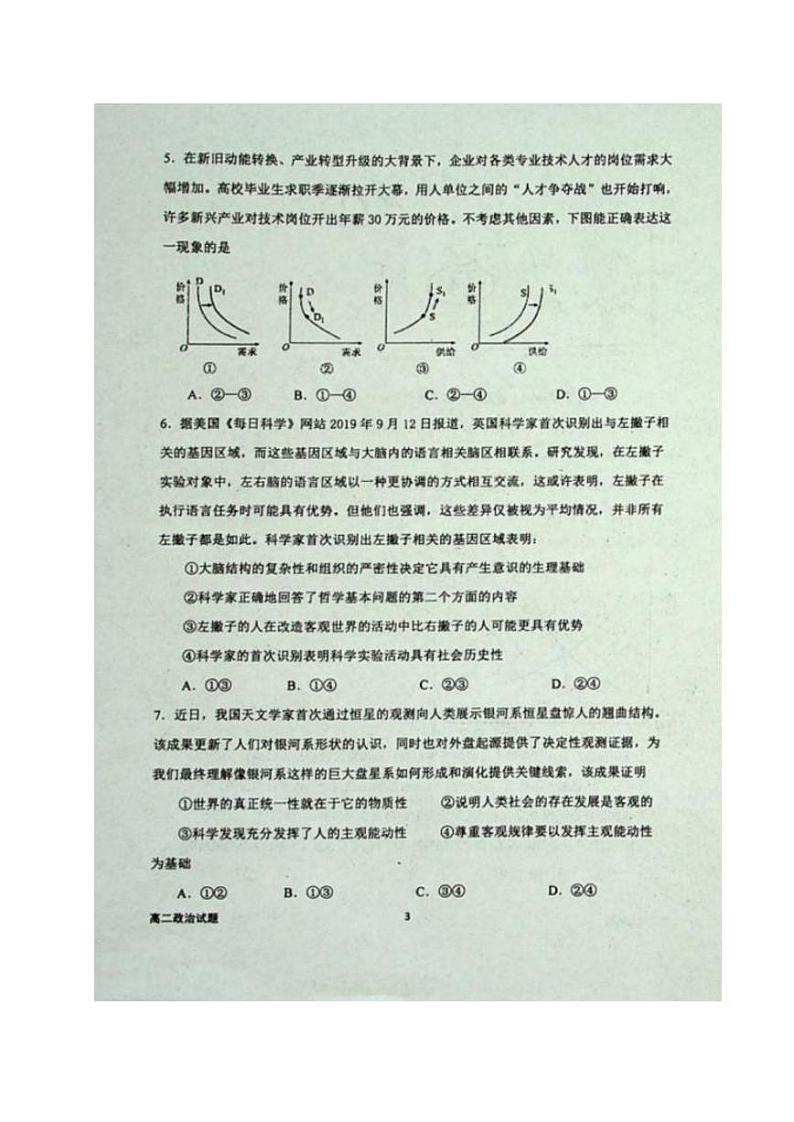 5．在新旧动能转换、产业转型升级的大背景下，企业对各类专业技术人才的岗位需求大
幅增加。高校毕业生求职季逐渐拉开大幕，用人单位之间的“人才争夺战”也开始打响，
许多新兴产业对技术岗位开出年薪 30 万元的价格。不考虑其他因素，下图能正确表达这
一现象的是
价格 D D₁ O 需求
价格 D D₁ O 需求
价格 S₁ S O 供给
价格 S S₁ O 供给
① ② ③ ④
A．②—③ B．①—④ C．②—④ D．①—③
6．据美国《每日科学》网站 2019 年 9 月 12 日报道，英国科学家首次识别出与左撇子相
关的基因区域，而这些基因区域与大脑内的语言相关脑区相联系。研究发现，在左撇子
实验对象中，左右脑的语言区域以一种更协调的方式相互交流，这或许表明，左撇子在
执行语言任务时可能具有优势。但他们也强调，这些差异仅被视为平均情况，并非所有
左撇子都是如此。科学家首次识别出左撇子相关的基因区域表明：
①大脑结构的复杂性和组织的严密性决定它具有产生意识的生理基础
②科学家正确地回答了哲学基本问题的第二个方面的内容
③左撇子的人在改造客观世界的活动中比右撇子的人可能更具有优势
④科学家的首次识别表明科学实验活动具有社会历史性
A．①③ B．①④ C．②③ D．②④
7．近日，我国天文学家首次通过恒星的观测向人类展示银河系恒星盘惊人的翘曲结构。
该成果更新了人们对银河系形状的认识，同时也对外盘起源提供了决定性观测证据，为
我们最终理解像银河系这样的巨大盘星系如何形成和演化提供关键线索，该成果证明
①世界的真正统一性就在于它的物质性 ②说明人类社会的存在发展是客观的
③科学发现充分发挥了人的主观能动性 ④尊重客观规律要以发挥主观能动性
为基础
A．①② B．①③ C．③④ D．②④
高二政治试题 3